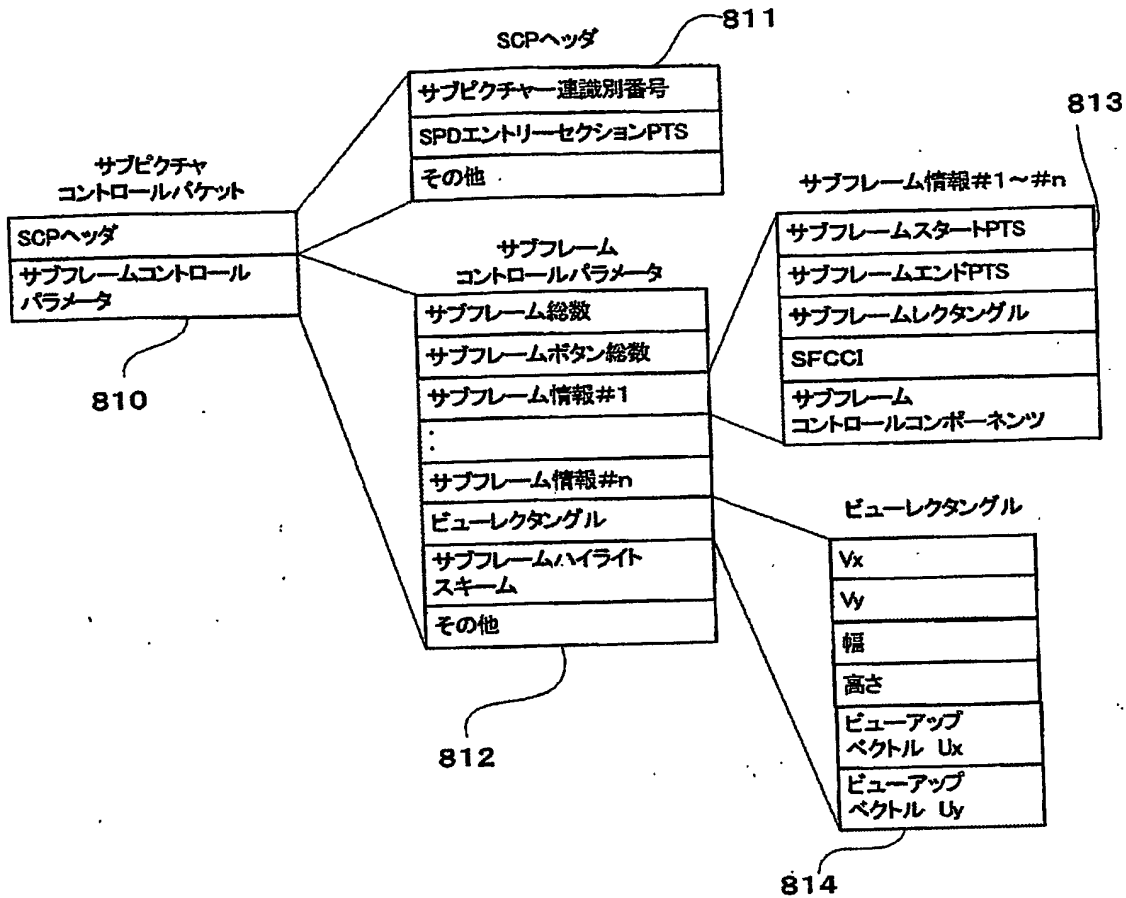 SCPヘッダ
811
サブピクチャー連識別番号
SPDエントリーセクションPTS
その他
サブピクチャ
コントロールパケット
SCPヘッダ
サブフレームコントロール
パラメータ
810
サブフレーム
コントロールパラメータ
サブフレーム総数
サブフレームボタン総数
サブフレーム情報#1
:
サブフレーム情報#n
ビューレクタングル
サブフレームハイライト
スキーム
その他
812
813
サブフレーム情報#1~#n
サブフレームスタートPTS
サブフレームエンドPTS
サブフレームレクタングル
SFCCI
サブフレーム
コントロールコンポーネンツ
ビューレクタングル
Vx
Vy
幅
高さ
ビューアップ
ベクトル Ux
ビューアップ
ベクトル Uy
814